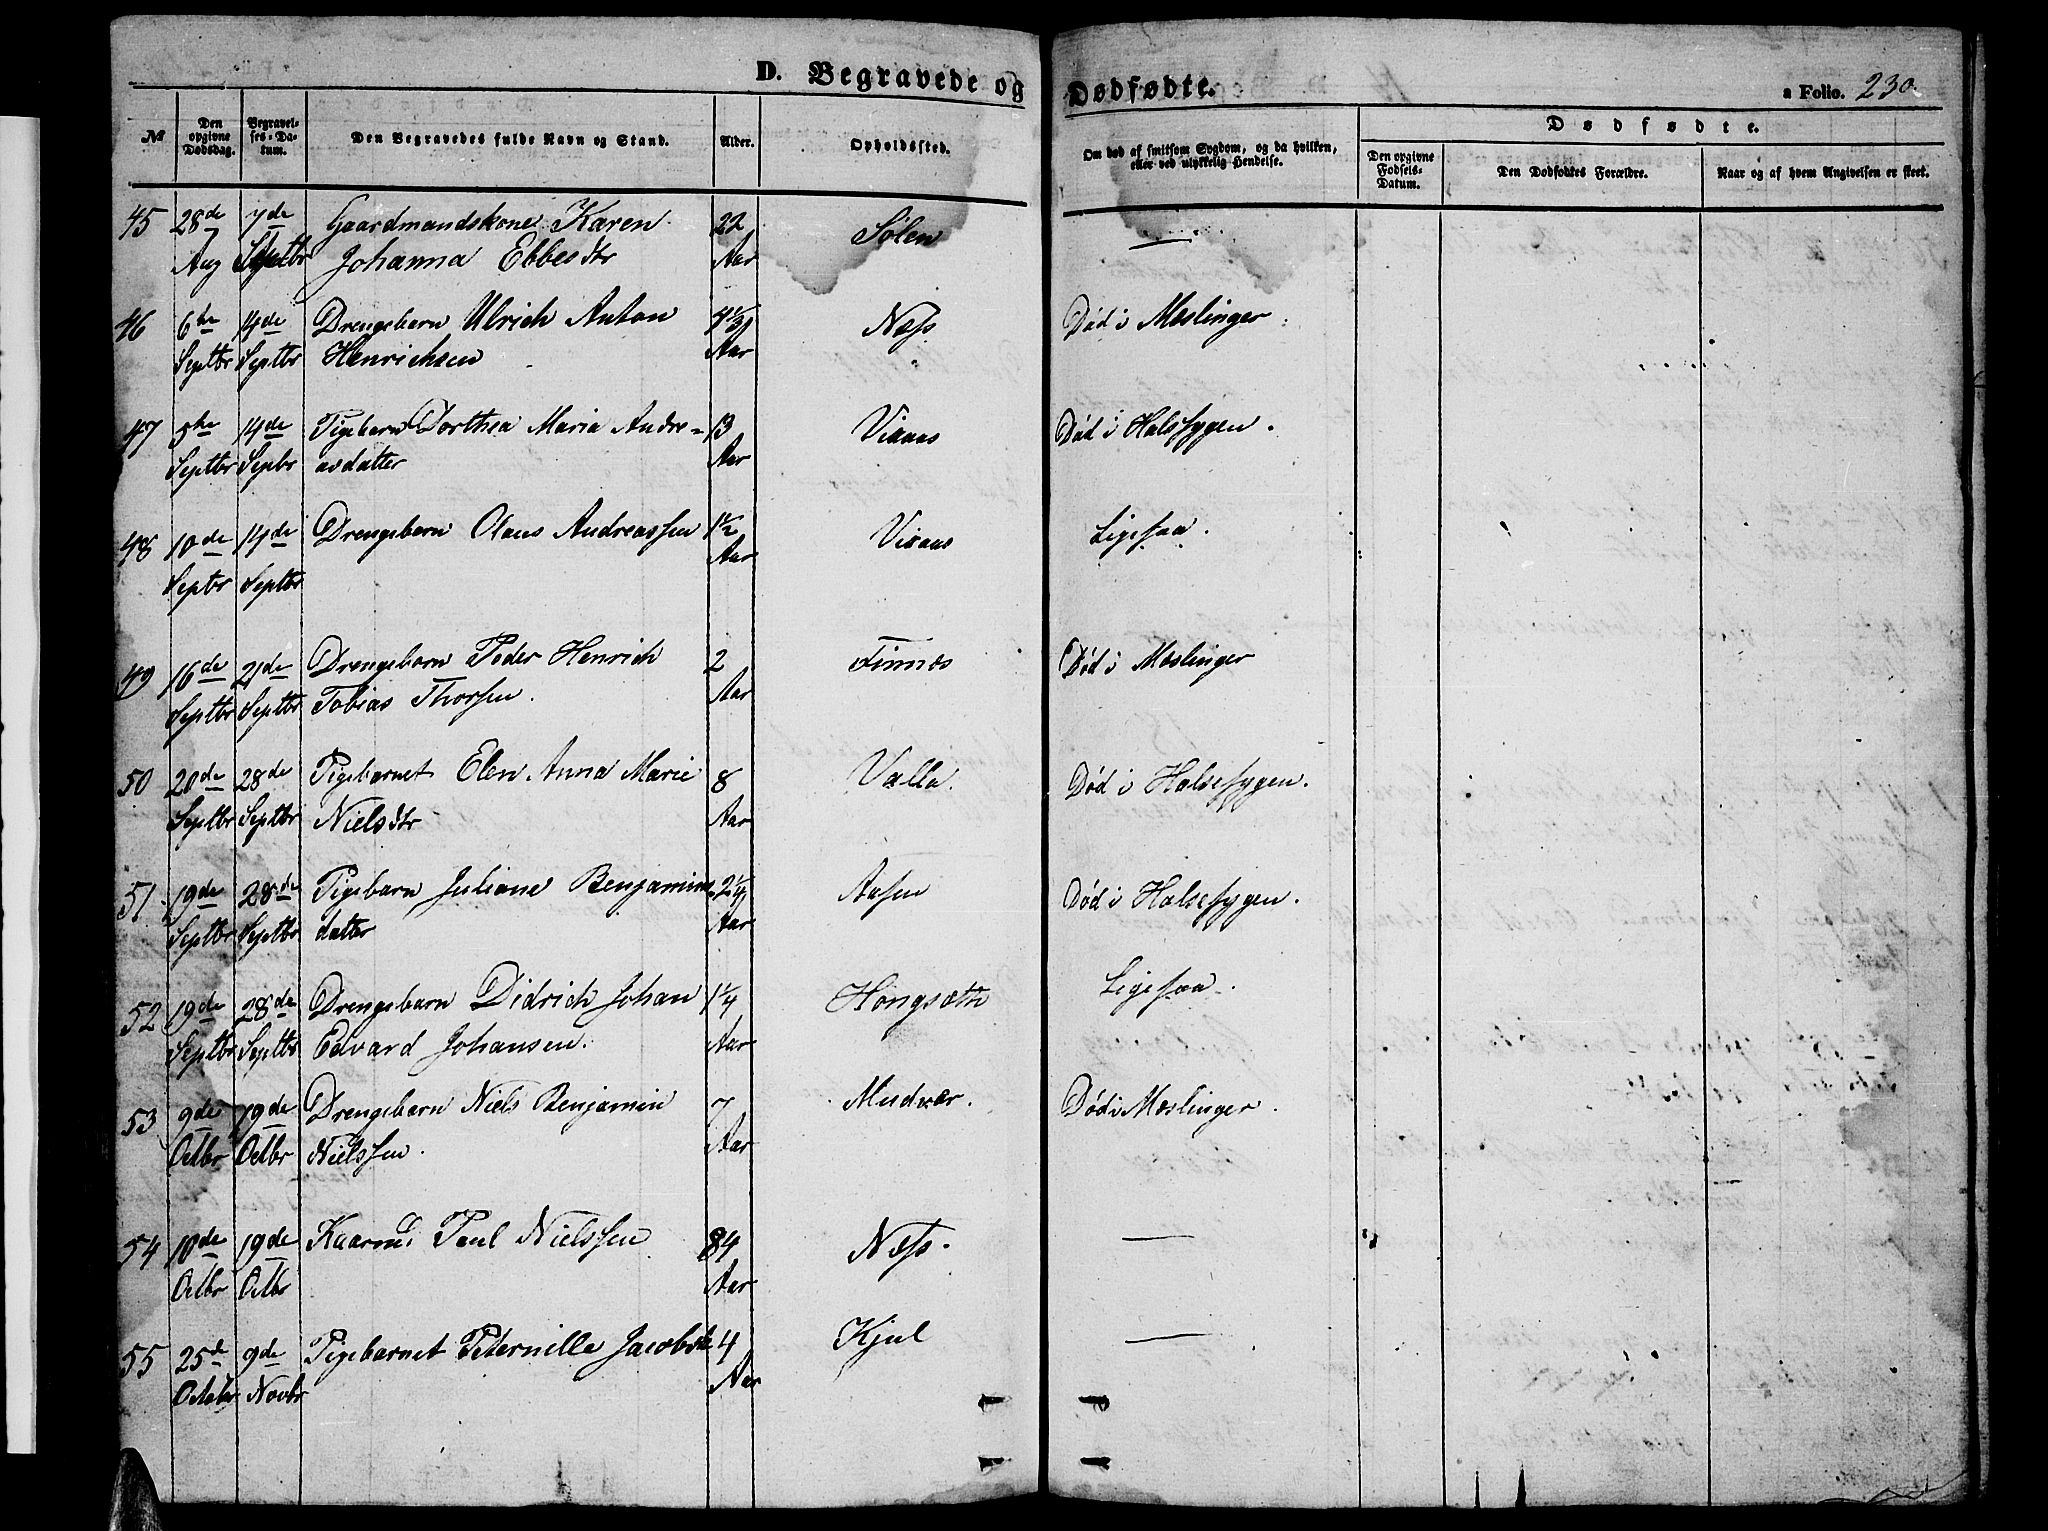 D. Begravede og Dødfødte. a Folio. 230.
№ Den opgivne Dødsdag. Begravelses-Datum. Den Begravedes fulde Navn og Stand. Alder. Opholdssted. Om død af smitsom Sygdom, og da hvilken, eller ved ulykkelig Hendelse. Dødfødte.
Den opgivne Fødsels-Datum. Den Dødfødtes Forældre. Naar og af hvem Angivelsen er skeet.
45 28de 7de Gaardmandskone Karen 22 Sølen —
Aug Septbr Johanna Ebbesdtr Aar
46 6te 14de Drengebarn Ulrich Anton 4½ Næss Død i Mæslinger
Septbr Septbr Henrichsen Aar
47 5te 14de Pigebarn Dorthea Maria Andre= 13 Viaaas Død i Halssygen.
Septbr Sepbr asdatter Aar
48 10de 14de Drengebarn Olaus Andreassen 1½ Viaaas Ligesaa.
Septbr Septbr Aar
49 16de 21de Drengebarn Peder Henrich 2 Finnæs Død i Mæslinger
Septbr Septbr Tobias Thorsen. Aar
50 20de 28de Pigebarnet Elen Anna Marie 8 Valla. Død i Halsesygen.
Septbr Septbr Nielsdtr Aar
51 19de 28de Pigebarn Juliane Benjamins 2¼ Aasen Død i Halsesygen.
Septbr Septbr datter Aar
52 19de 28de Drengebarn Didrich Johan 1¼ Hongsæth Ligesaa.
Septbr Septbr Edvard Johansen. Aar
53 9de 19de Drengebarn Niels Benjamin 7 Mudvær. Død i Mæslinger.
Octbr Octbr Nielssen. Aar
54 10de 19de Poul Nielssen 84 Næss. —
Octbr Octbr Aar
55 25de 9de Pigebarnet Peternille Jacobsdtr 4 Kjul —
Octbr Novbr Aar